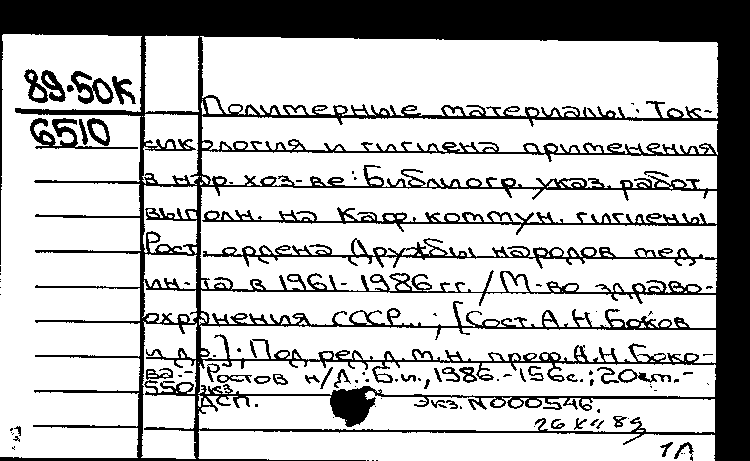 89-50К
6510
Полимерные материалы: Ток-
сикология и гигиена применения
в нар. хоз-ве: Библиогр. указ. работ,
выполн. на каф. коммун. гигиены
Рост. ордена Дружбы народов мед.
ин-та в 1961-1986 гг. / М-во здраво-
охранения СССР...; [Сост. А.Н. Боков
и др.]; Под ред. д.м.н. проф. А.Н. Боко-
ва.- Ростов н/Д.: Б.и., 1986.- 156с.; 20см.-
550 экз.
ДСП. Экз. N000546.
26 XII 89
1Л